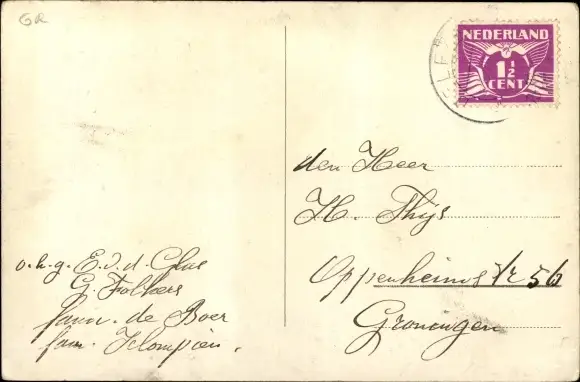 GR
NEDERLAND
1½
CENT
den Heer
H. Thijs
Oppenheimstr 56
Groningen
o.h.g. E. v. d. Clus
G. Folkers
fam. de Boer
fam. Klompien.